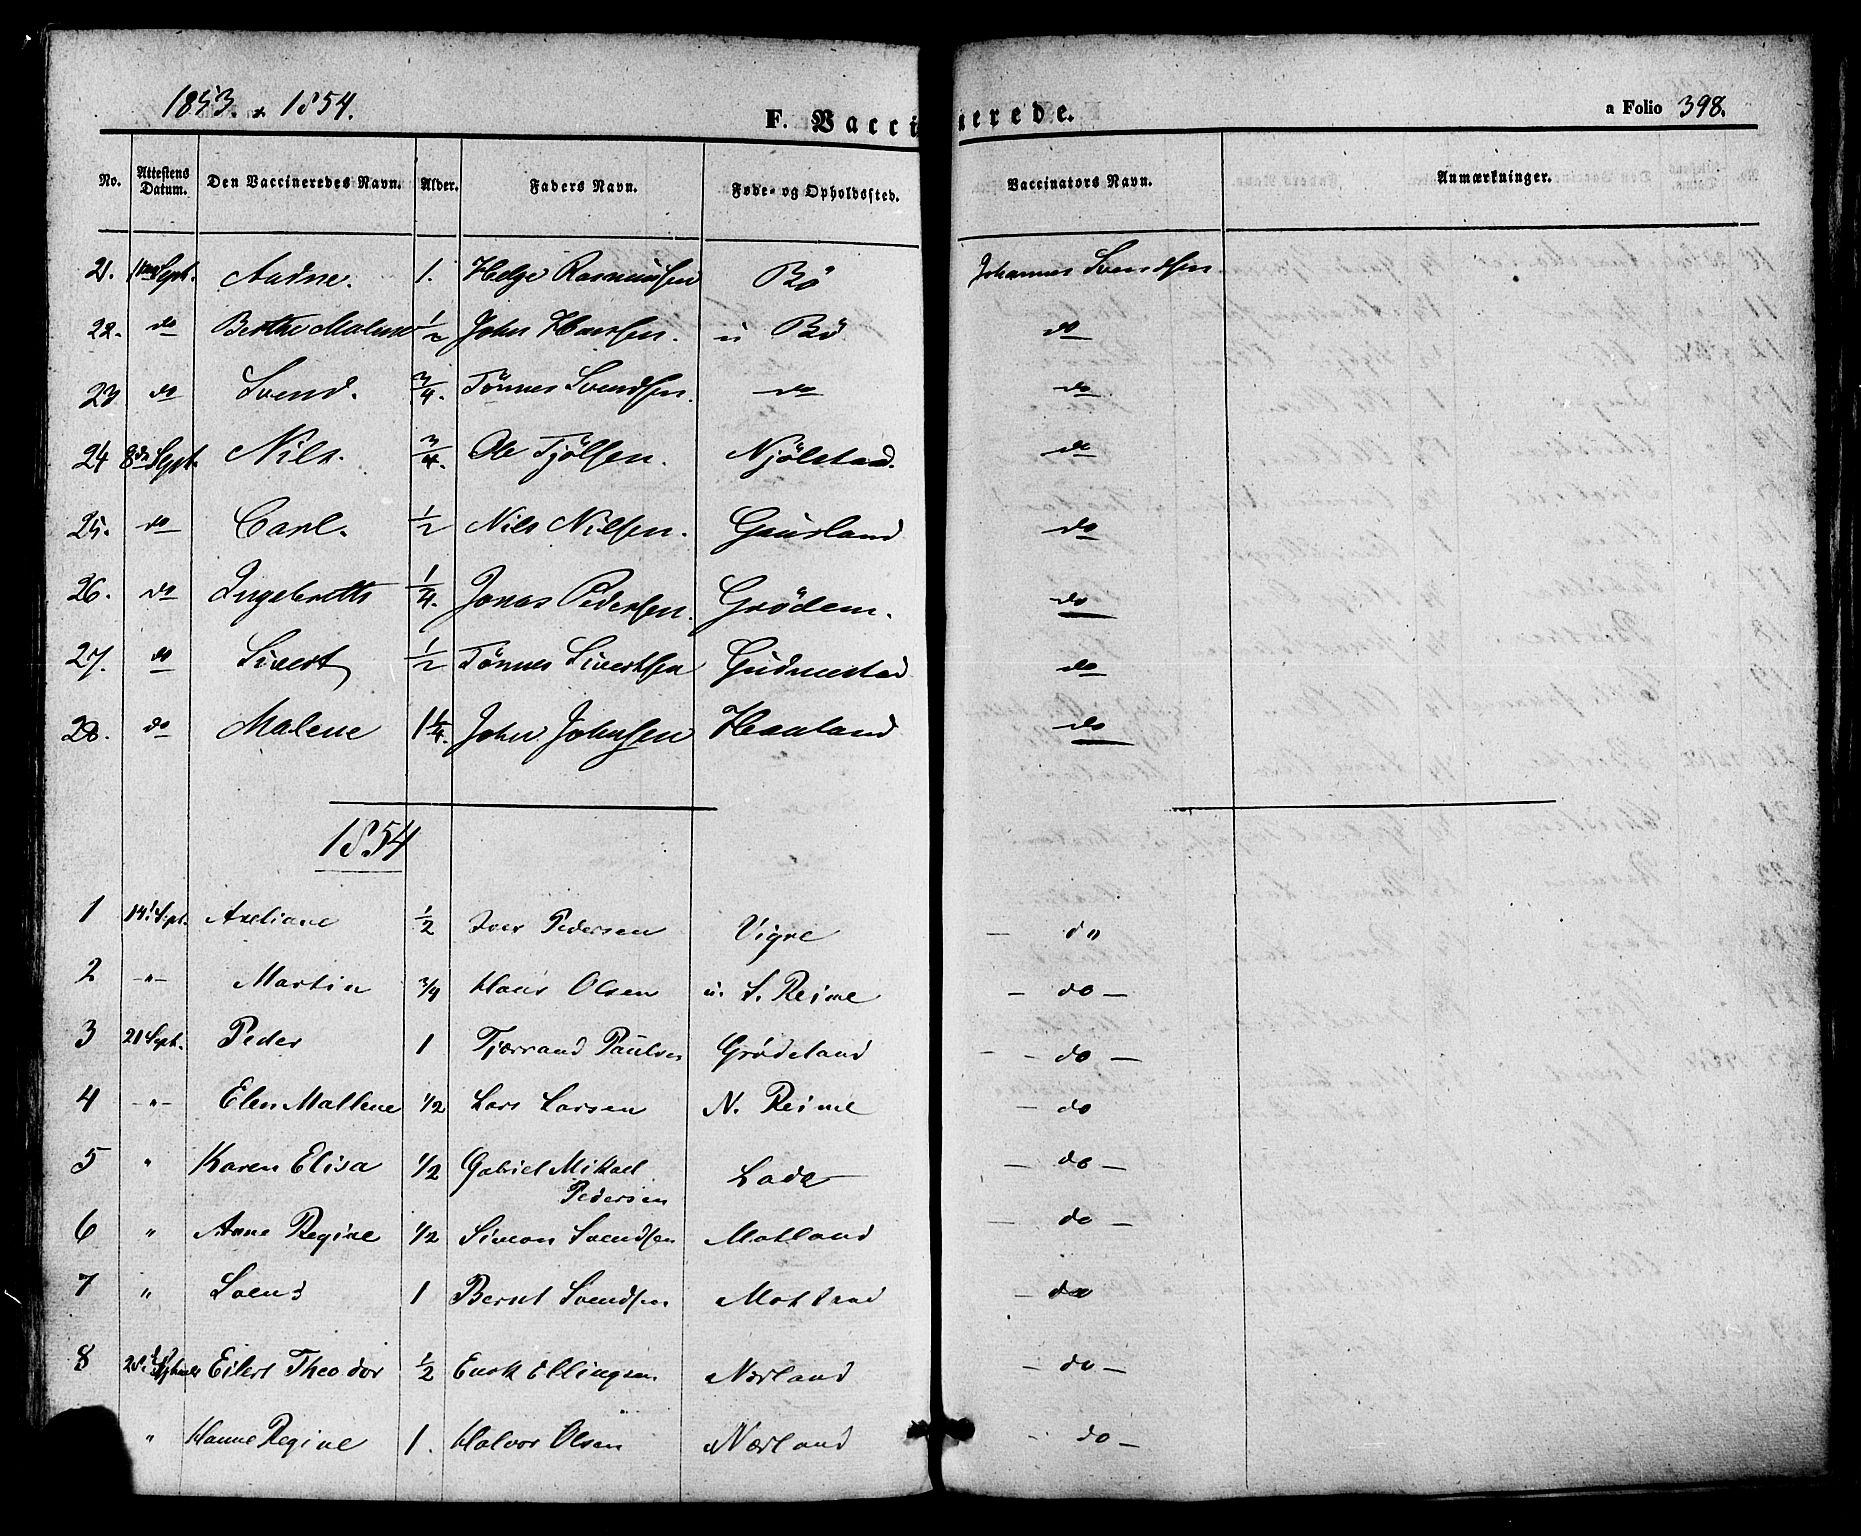 1853 & 1854.
F. Vaccinerede.
a Folio 398.
No. Attestens Datum. Den Vaccineredes Navn. Alder. Faders Navn. Føde- og Opholdssted. Vaccinators Navn. Anmærkninger.
21. Sept. Aadne. 1. Helge Rasmussen Bö Johannes Svendsen
22. do Berthe Malene 1/2 John Hansen. u Bö do
23 do Svend. 3/4. Tönnes Svendsen. do do
24 8de Sept. Nils. 3/4. Ole Tjölsen. Njölstad. do
25. do Carl. 1/2 Nils Nilsen. Gausland do
26. do Ingebreth 1/4. Jonas Pedersen. Grödem. do
27. do Sivert 1/2 Tönnes Sivertsen Gudmestad do
28. do Malene 1 1/4. John Johnsen Haaland do
1854
1 14 Sept. Axeliane 1/2 Iver Pedersen Vigre — do
2 —"— Martin 3/4 Hans Olsen u. S. Reime — do —
3 21 Sept. Peder 1 Tjærrand Paulsen Grødeland — do —
4 —"— Elen Mallene 1/2 Lars Larsen N. Reime — do
5 " Karen Elisa 1/2 Gabriel Mikael Pedersen Lade — do —
6 " Anne Regine 1/2 Simon Svendsen Motland — do —
7 " Svend 1 Bernt Svendsen Motland — do —
8 Eilert Theodor 1/2 Enok Ellingsen Nærland — do —
" Hanne Regine 1. Halvor Olsen Nærland — do —